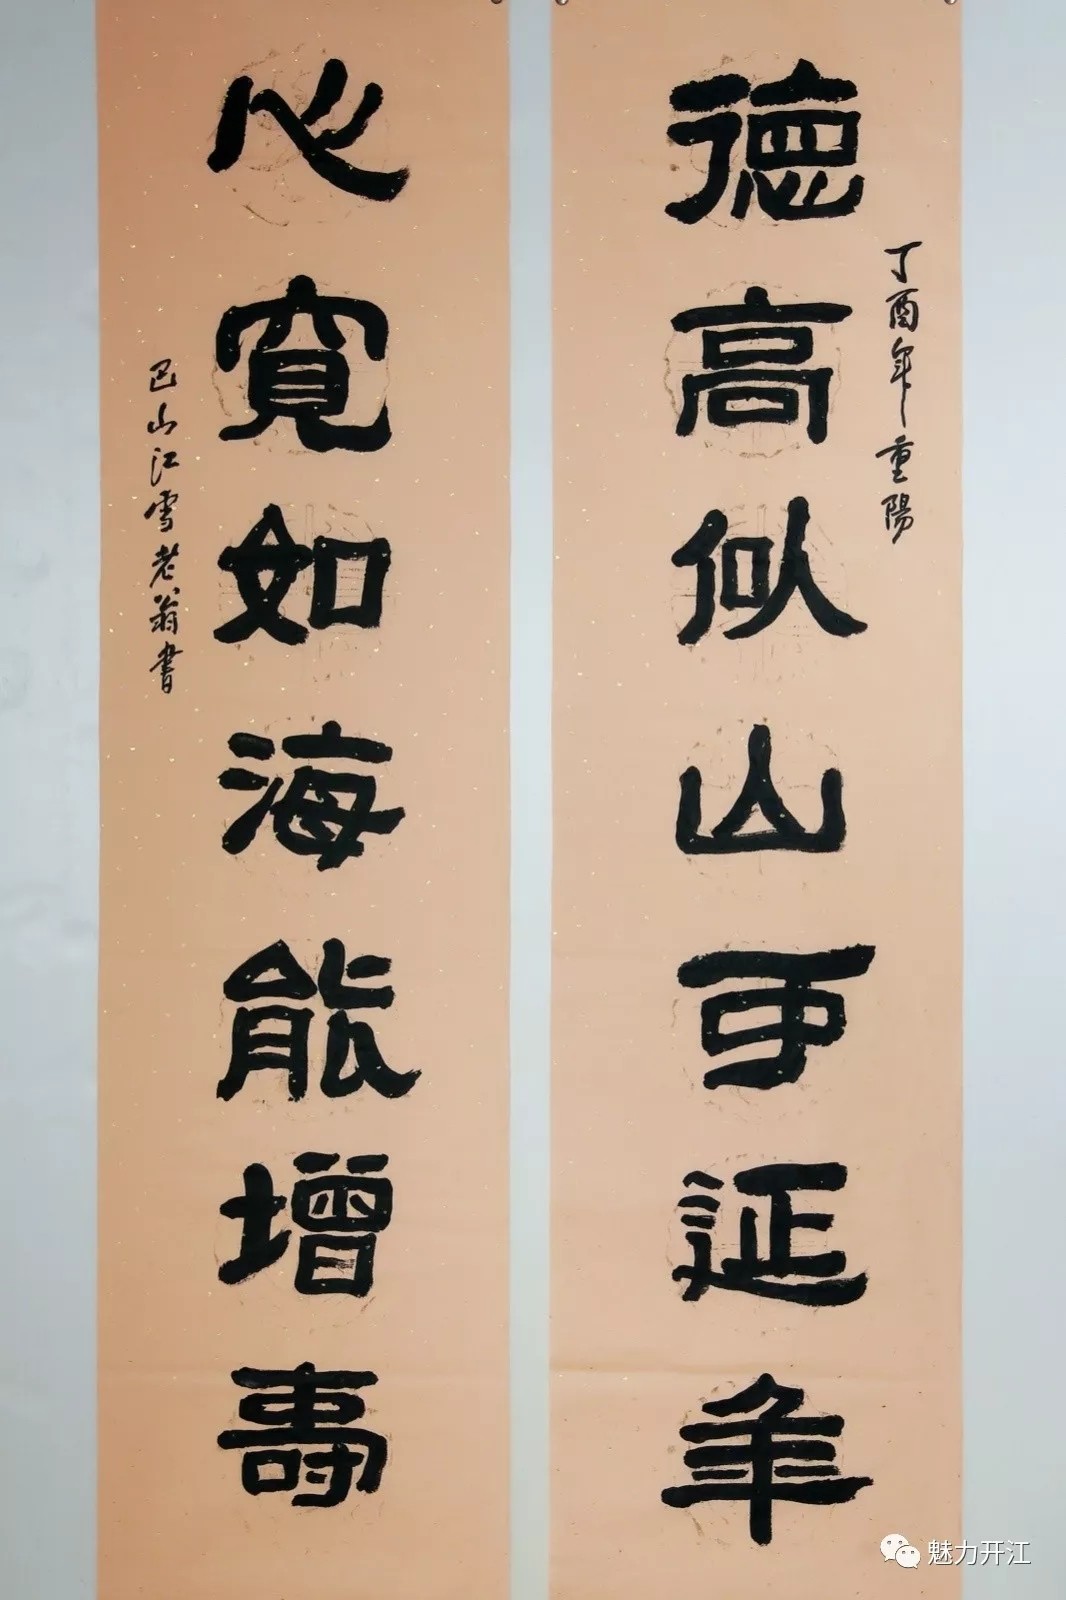 丁酉年重陽
德高似山可延年
心寬如海能增壽
巴山江雪老翁書
魅力开江